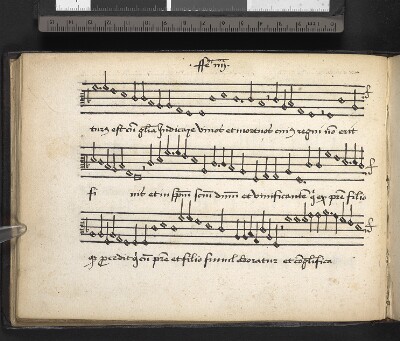 turꝰ est cū glia Judicare vivos et mortuos cuiꝰ regni nō erit
fi nis et in spm̄ scm̄ dnm̄ et vivificantē q̄ ex prē filio
q̄ procedit q̄ cū prē et filio simul adoratur et cōglifica